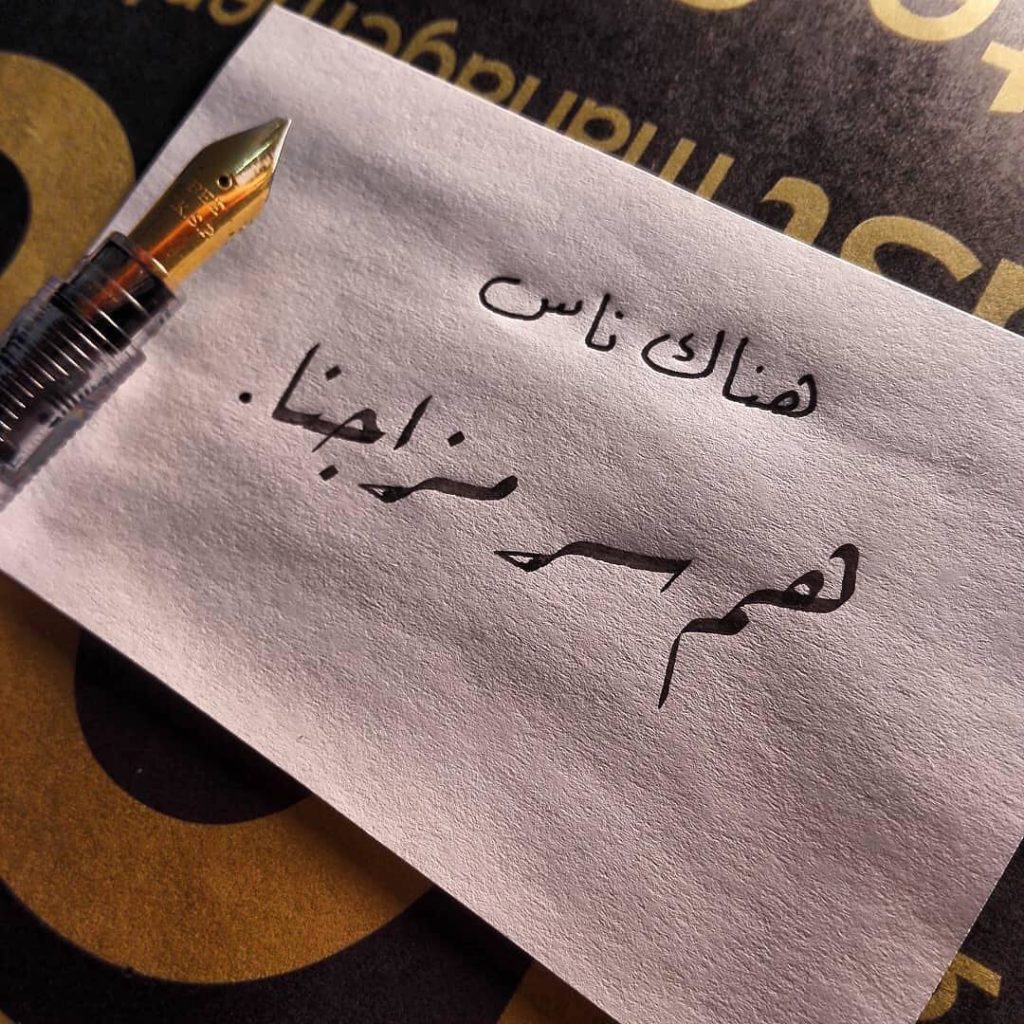 هناك ناس
هم سر مزاجنا.
management